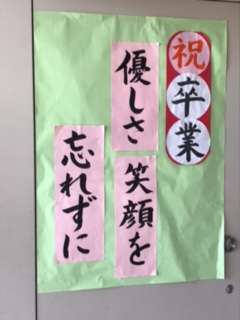 祝卒業
優しさ
笑顔を
忘れずに